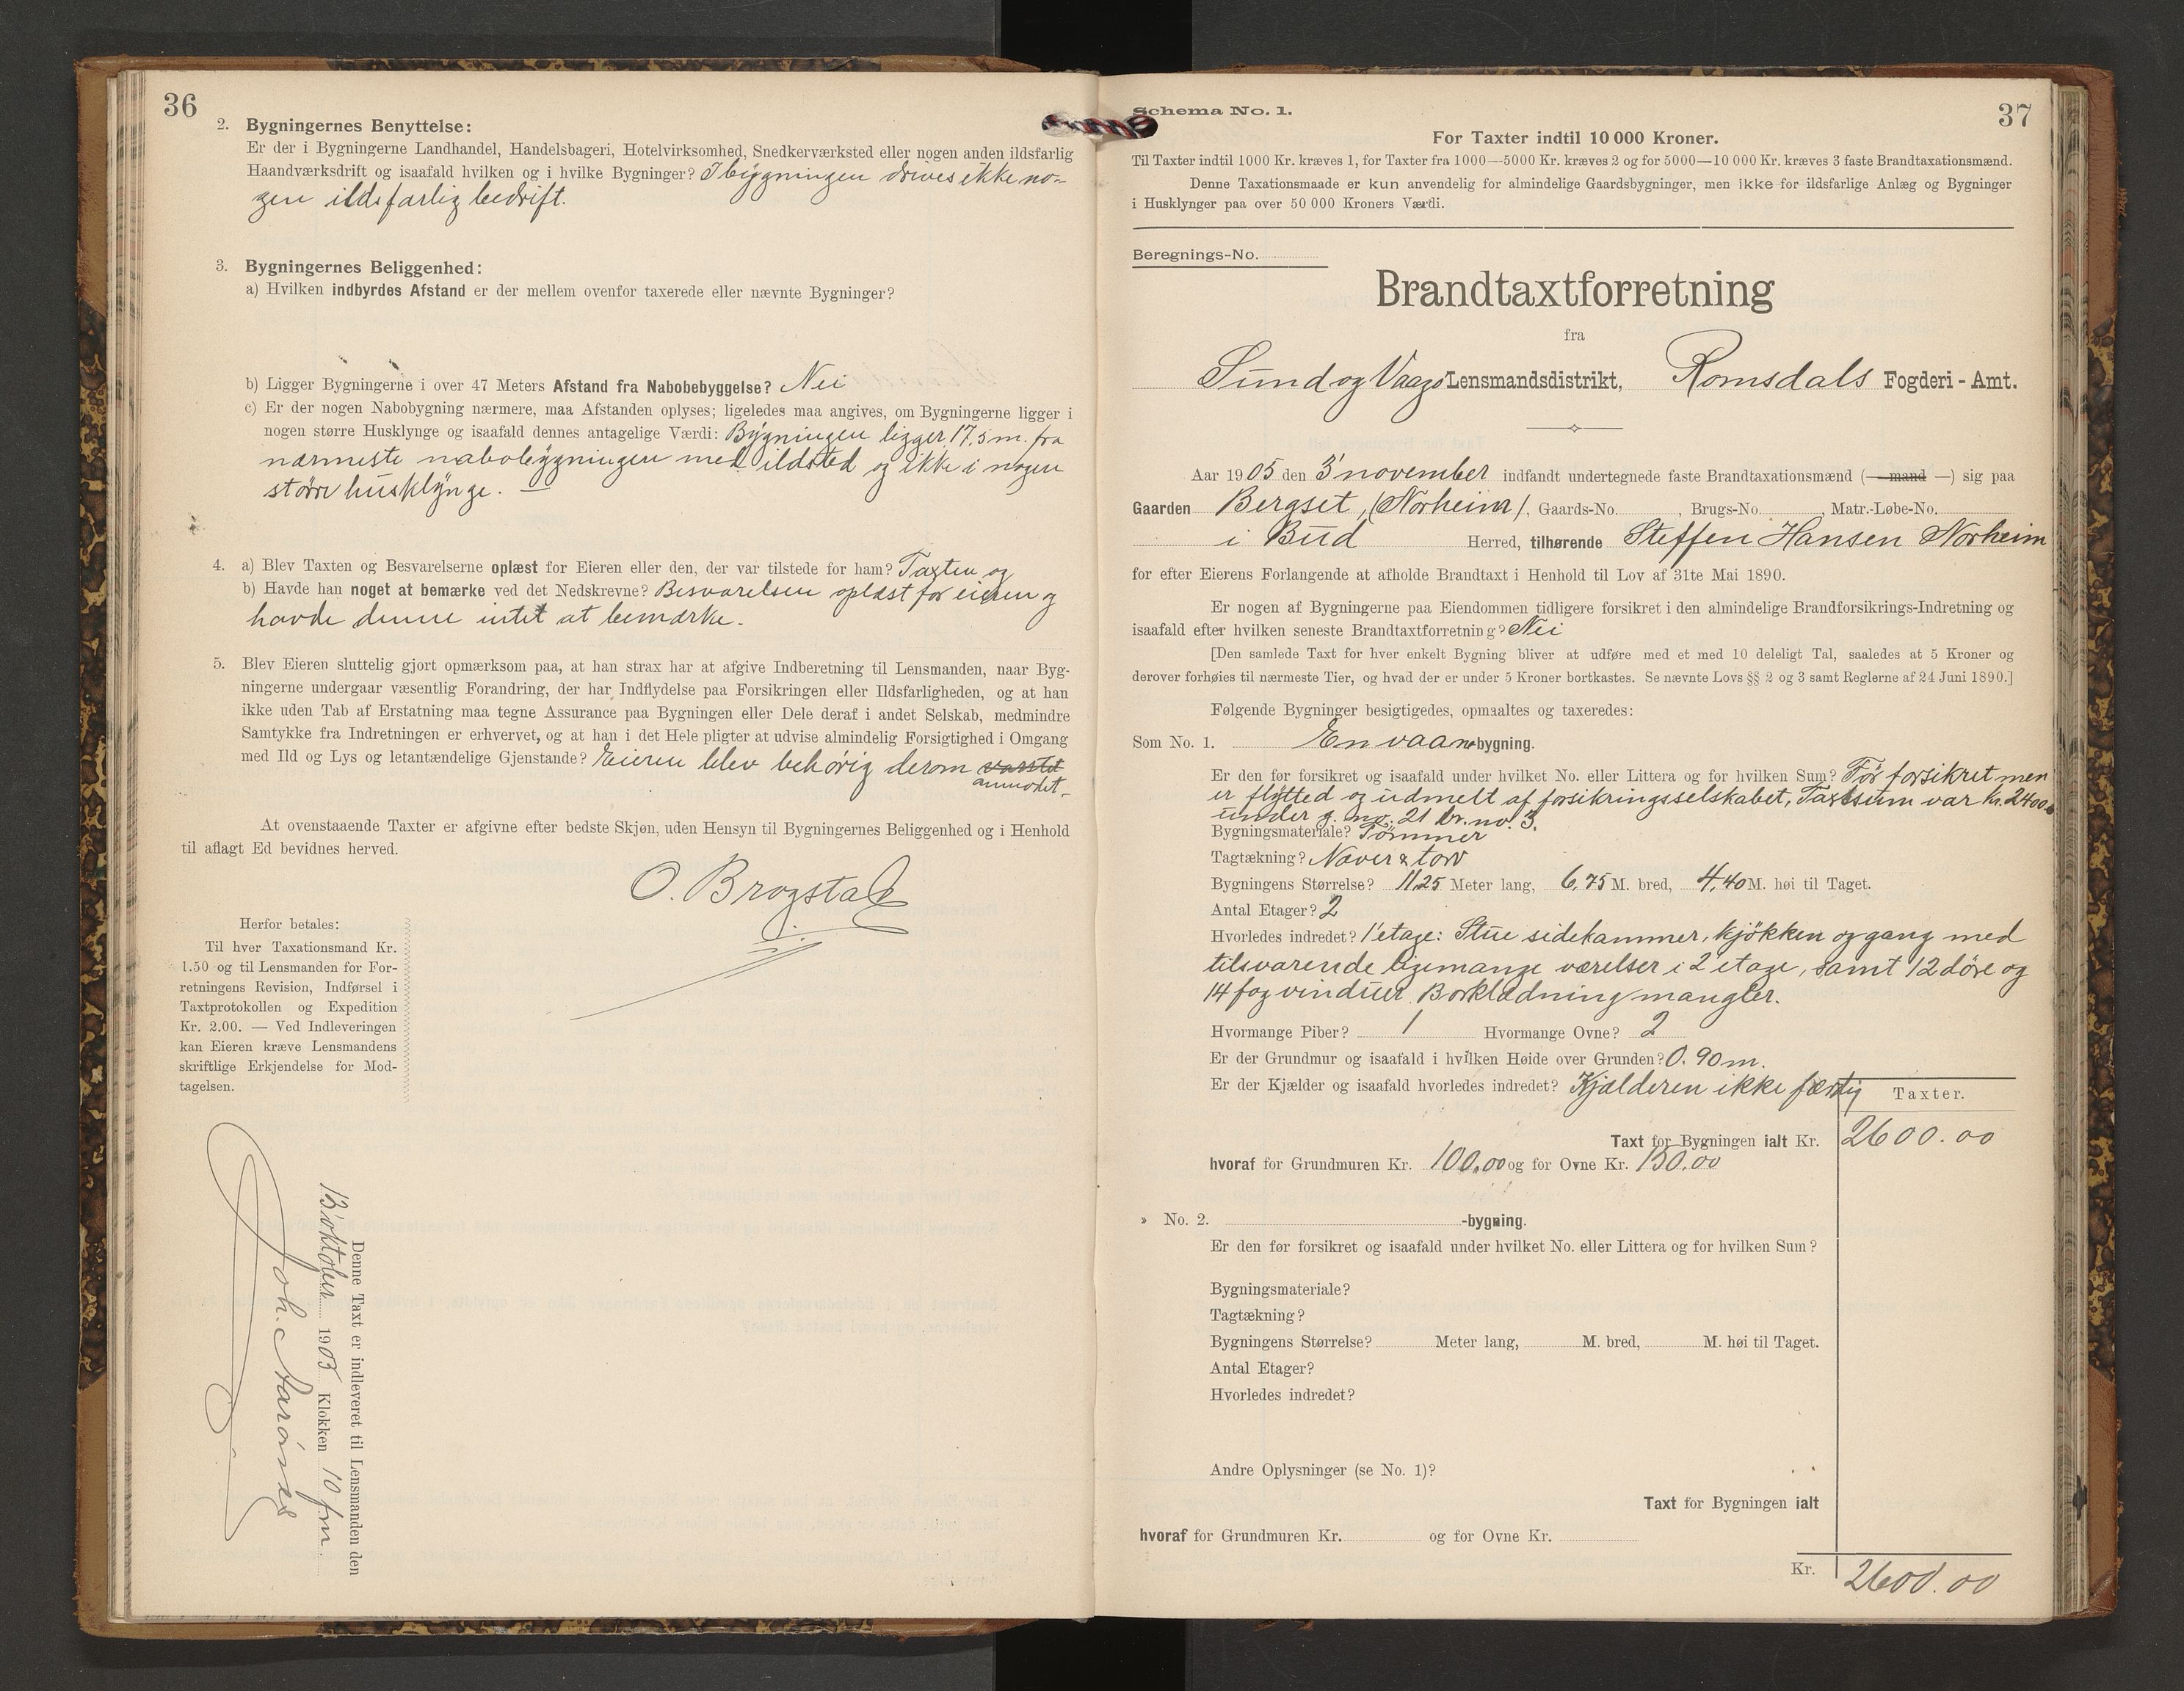 36
2. Bygningernes Benyttelse:
Er der i Bygningerne Landhandel, Handelsbageri, Hotelvirksomhed, Snedkerværksted eller nogen anden ildsfarlig
Haandværksdrift og isaafald hvilken og i hvilke Bygninger? I bygningen drives ikke no-
gen ildsfarlig bedrift.
3. Bygningernes Beliggenhed:
a) Hvilken indbyrdes Afstand er der mellem ovenfor taxerede eller nævnte Bygninger?
b) Ligger Bygningerne i over 47 Meters Afstand fra Nabobebyggelse? Nei
c) Er der nogen Nabobygning nærmere, maa Afstanden oplyses; ligeledes maa angives, om Bygningerne ligger i
nogen større Husklynge og isaafald dennes antagelige Værdi: Bygningen ligger 17,5 m. fra
nærmeste nabobygningen med ildsted og ikke i nogen
større husklynge. —
4. a) Blev Taxten og Besvarelserne oplæst for Eieren eller den, der var tilstede for ham? Taxten og
b) Havde han noget at bemærke ved det Nedskrevne? Besvarelsen oplæst for eieren og
havde denne intet at bemærke.
5. Blev Eieren sluttelig gjort opmærksom paa, at han strax har at afgive Indberetning til Lensmanden, naar Byg-
ningerne undergaar væsentlig Forandring, der har Indflydelse paa Forsikringen eller Ildsfarligheden, og at han
ikke uden Tab af Erstatning maa tegne Assurance paa Bygningen eller Dele deraf i andet Selskab, medmindre
Samtykke fra Indretningen er erhvervet, og at han i det Hele pligter at udvise almindelig Forsigtighed i Omgang
med Ild og Lys og letantændelige Gjenstande? Eieren blev behörig derom
anmodet.
At ovenstaaende Taxter er afgivne efter bedste Skjøn, uden Hensyn til Bygningernes Beliggenhed og i Henhold
til aflagt Ed bevidnes herved.
O. Brogstad
Herfor betales:
Til hver Taxationsmand Kr.
1.50 og til Lensmanden for For-
retningens Revision, Indførsel i
Taxtprotokollen og Expedition
Kr. 2.00. — Ved Indleveringen
kan Eieren kræve Lensmandens
skriftlige Erkjendelse for Mod-
tagelsen.
Denne Taxt er indleveret til Lensmanden den
13' oktober 1905 Klokken 10 fm.
Joh. Aarönes
37
Schema No. 1.
For Taxter indtil 10 000 Kroner.
Til Taxter indtil 1000 Kr. kræves 1, for Taxter fra 1000—5000 Kr. kræves 2 og for 5000—10 000 Kr. kræves 3 faste Brandtaxationsmænd.
Denne Taxationsmaade er kun anvendelig for almindelige Gaardsbygninger, men ikke for ildsfarlige Anlæg og Bygninger
i Husklynger paa over 50 000 Kroners Værdi.
Beregnings-No.
Brandtaxtforretning
fra
Sund og Vaagø Lensmandsdistrikt, Romsdals Fogderi - Amt.
Aar 1905 den 3' november indfandt undertegnede faste Brandtaxationsmænd (— mand —) sig paa
Gaarden Bergset, (Norheim), Gaards-No. , Brugs-No. , Matr.-Løbe-No.
i Bud Herred, tilhørende Steffen Hansen Norheim
for efter Eierens Forlangende at afholde Brandtaxt i Henhold til Lov af 31te Mai 1890.
Er nogen af Bygningerne paa Eiendommen tidligere forsikret i den almindelige Brandforsikrings-Indretning og
isaafald efter hvilken seneste Brandtaxtforretning? Nei
[Den samlede Taxt for hver enkelt Bygning bliver at udføre med et med 10 deleligt Tal, saaledes at 5 Kroner og
derover forhøies til nærmeste Tier, og hvad der er under 5 Kroner bortkastes. Se nævnte Lovs §§ 2 og 3 samt Reglerne af 24 Juni 1890.]
Følgende Bygninger besigtigedes, opmaaltes og taxeredes:
Som No. 1. En vaane-bygning.
Er den før forsikret og isaafald under hvilket No. eller Littera og for hvilken Sum? Før forsikret men
er flyttet og udmelt af forsikringsselskabet, Taxtsum var kr. 2400,00
under g. no. 21 br. no. 3.
Bygningsmateriale? Tømmer
Tagtækning? Næver & torv
Bygningens Størrelse? 11,25 Meter lang, 6,75 M. bred, 4,40 M. høi til Taget.
Antal Etager? 2
Hvorledes indredet? 1' etage: Stue sidekammer, kjökken og gang med
tilsvarende ligemange værelser i 2' etage, samt 12 döre og
14 fag vinduer. Bordklædning mangler.
Hvormange Piber? 1 Hvormange Ovne? 2
Er der Grundmur og isaafald i hvilken Høide over Grunden? 0.90 m.
Er der Kjælder og isaafald hvorledes indredet? Kjælderen ikke færdig
Taxter.
Taxt for Bygningen ialt Kr. 2600.00
hvoraf for Grundmuren Kr. 100.00 og for Ovne Kr. 150.00
» No. 2. -bygning.
Er den før forsikret og isaafald under hvilket No. eller Littera og for hvilken Sum?
Bygningsmateriale?
Tagtækning?
Bygningens Størrelse? Meter lang, M. bred, M. høi til Taget.
Antal Etager?
Hvorledes indredet?
Andre Oplysninger (se No. 1)?
Taxt for Bygningen ialt
hvoraf for Grundmuren Kr. og for Ovne Kr.
Kr. 2600.00